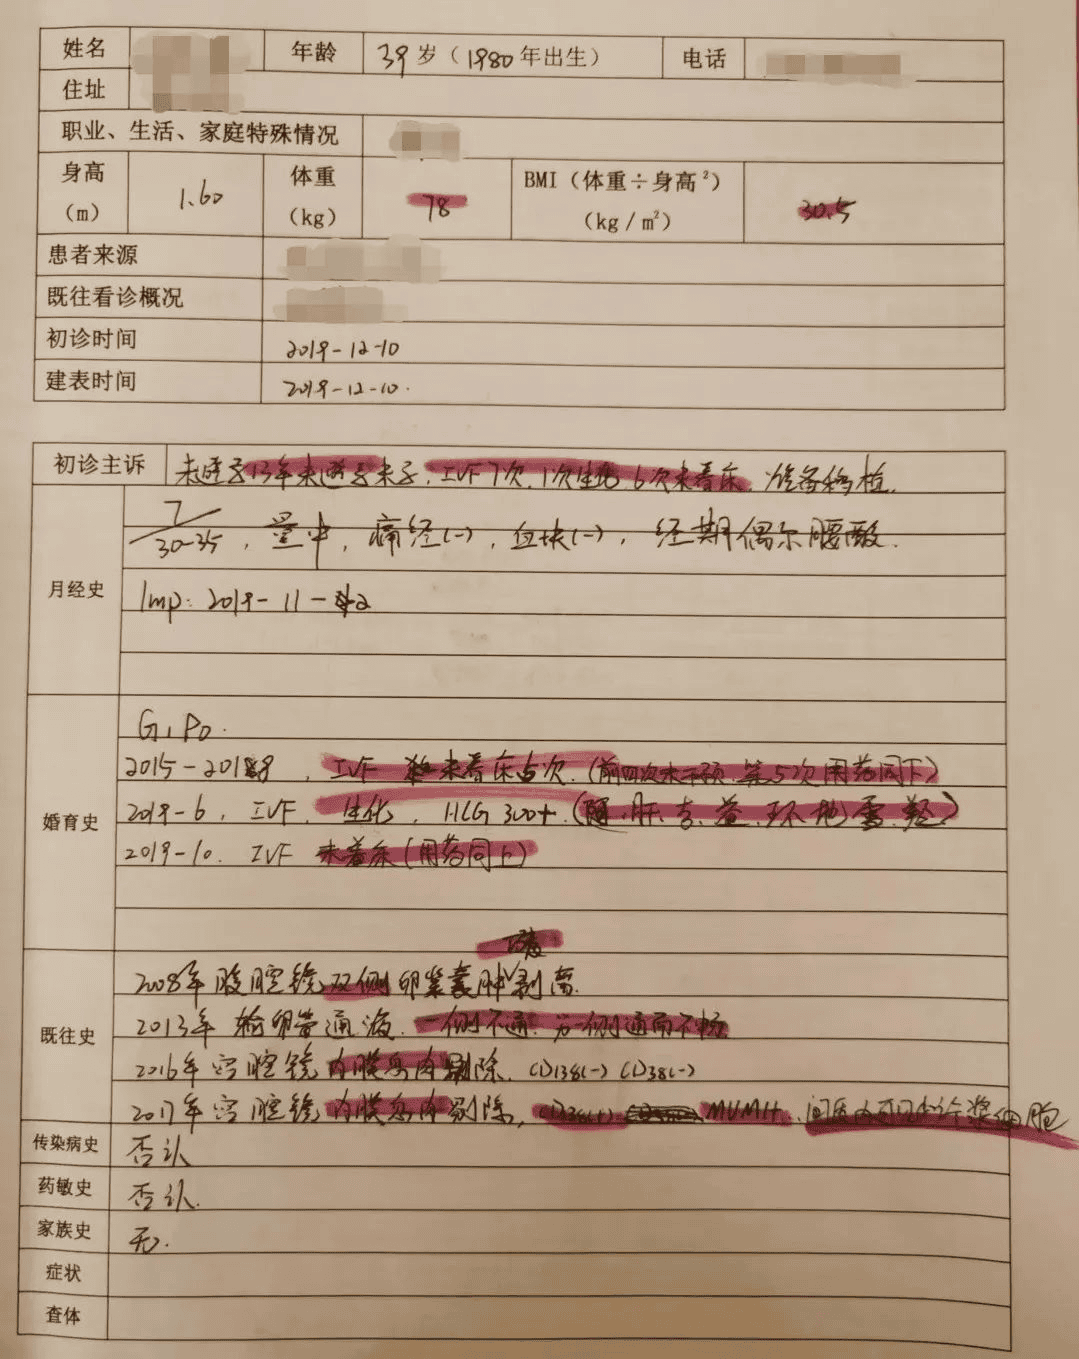 姓名 年龄 39岁（1980年出生） 电话
住址
职业、生活、家庭特殊情况
身高（m） 1.60 体重（kg） 78 BMI（体重÷身高²）（kg/m²） 30.5
患者来源
既往看诊概况
初诊时间 2019-12-10
建表时间 2019-12-10.
初诊主诉 未避孕13年未避孕未孕，IVF7次，1次生化，6次未着床，准备移植.
月经史 7/30-35，量中，痛经(-)，血块(-)，经期偶尔腰酸.
lmp：2019-11-
婚育史 G1P0.
2015-2018，IVF 未着床5次.（前四次未干预，第5次用药同下）
2019-6，IVF，生化，HCG 300+.（阿.肝.吉.益.环.地.雪.羟）
2019-10. IVF 未着床（用药同上）
巧
既往史 2008年腹腔镜双侧卵巢囊肿剥离.
2013年输卵管通液.一侧不通.另一侧通而不畅
2016年宫腔镜内膜息肉剔除. CD138(-) CD38(-)
2017年宫腔镜内膜息肉剔除，CD38(+) MUM1(+).间质内可见 浆细胞
传染病史 否认
药敏史 否认.
家族史 无.
症状
查体